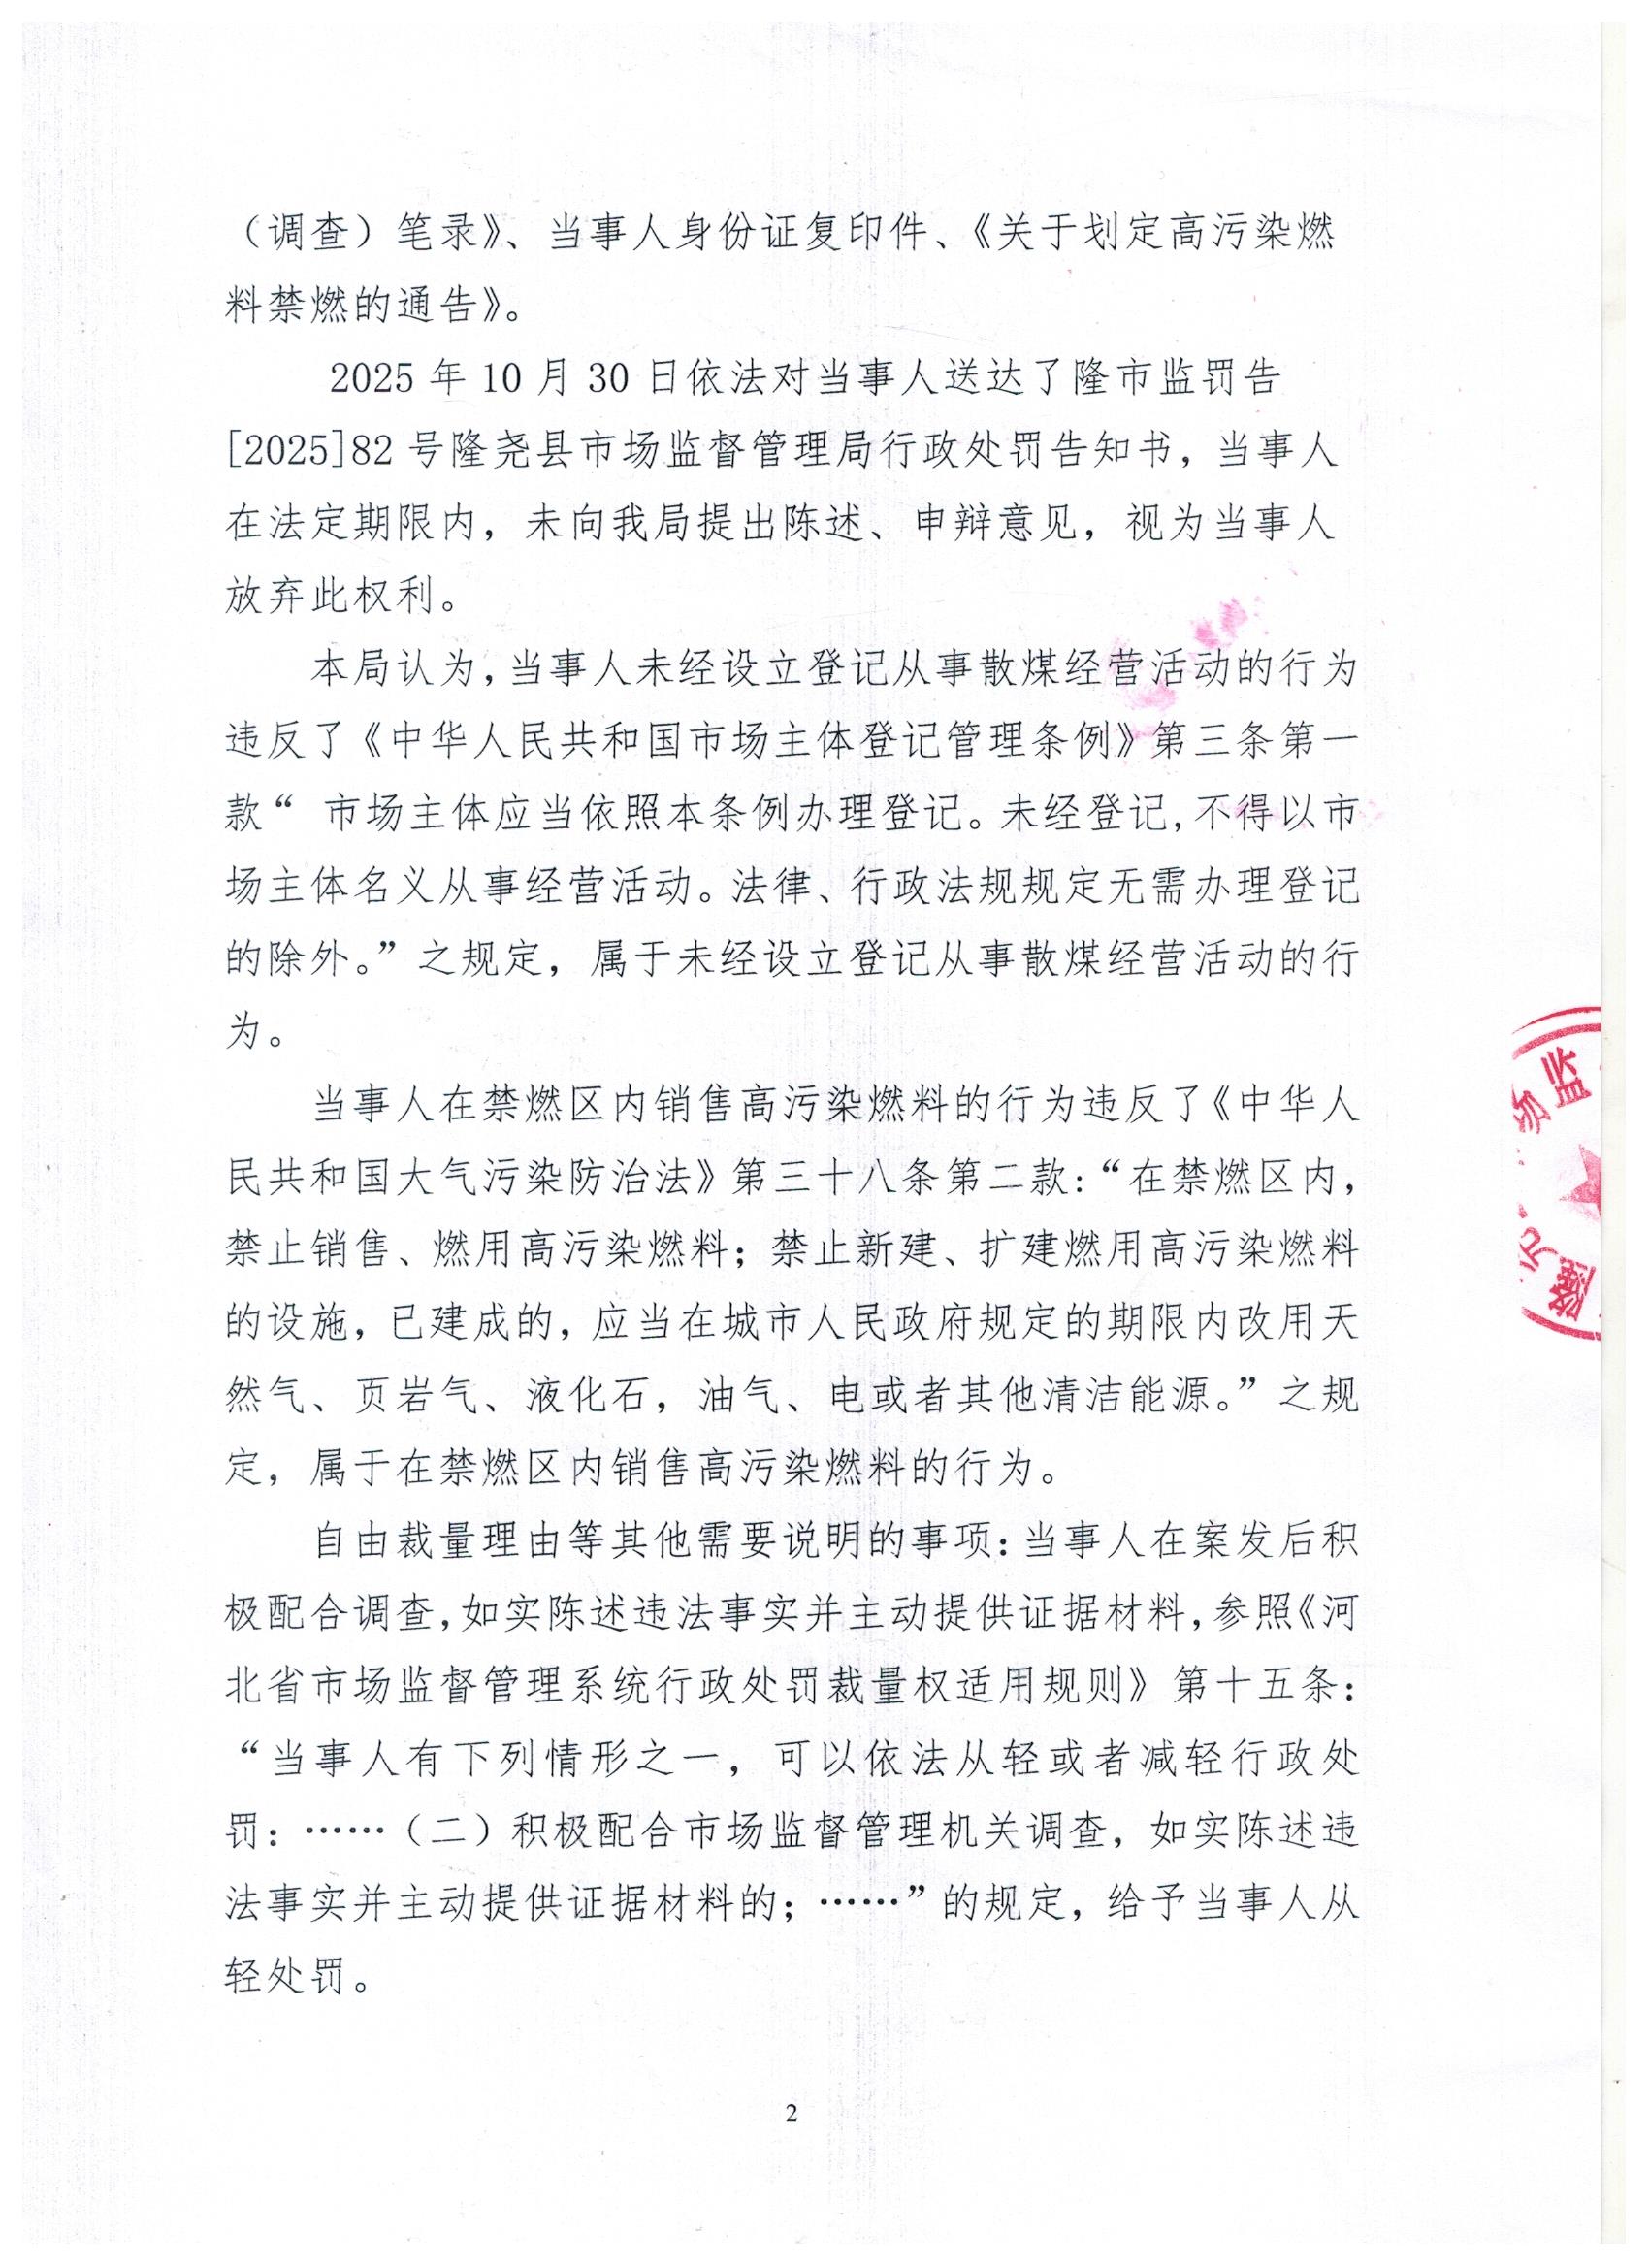 （调查）笔录》、当事人身份证复印件、《关于划定高污染燃
料禁燃的通告》。
2025 年 10 月 30 日依法对当事人送达了隆市监罚告
[2025]82 号隆尧县市场监督管理局行政处罚告知书，当事人
在法定期限内，未向我局提出陈述、申辩意见，视为当事人
放弃此权利。
本局认为，当事人未经设立登记从事散煤经营活动的行为
违反了《中华人民共和国市场主体登记管理条例》第三条第一
款“ 市场主体应当依照本条例办理登记。未经登记，不得以市
场主体名义从事经营活动。法律、行政法规规定无需办理登记
的除外。”之规定，属于未经设立登记从事散煤经营活动的行
为。
当事人在禁燃区内销售高污染燃料的行为违反了《中华人
民共和国大气污染防治法》第三十八条第二款：“在禁燃区内，
禁止销售、燃用高污染燃料；禁止新建、扩建燃用高污染燃料
的设施，已建成的，应当在城市人民政府规定的期限内改用天
然气、页岩气、液化石，油气、电或者其他清洁能源。”之规
定，属于在禁燃区内销售高污染燃料的行为。
自由裁量理由等其他需要说明的事项：当事人在案发后积
极配合调查，如实陈述违法事实并主动提供证据材料，参照《河
北省市场监督管理系统行政处罚裁量权适用规则》第十五条：
“当事人有下列情形之一，可以依法从轻或者减轻行政处
罚：……（二）积极配合市场监督管理机关调查，如实陈述违
法事实并主动提供证据材料的；……”的规定，给予当事人从
轻处罚。
2
隆尧
场监